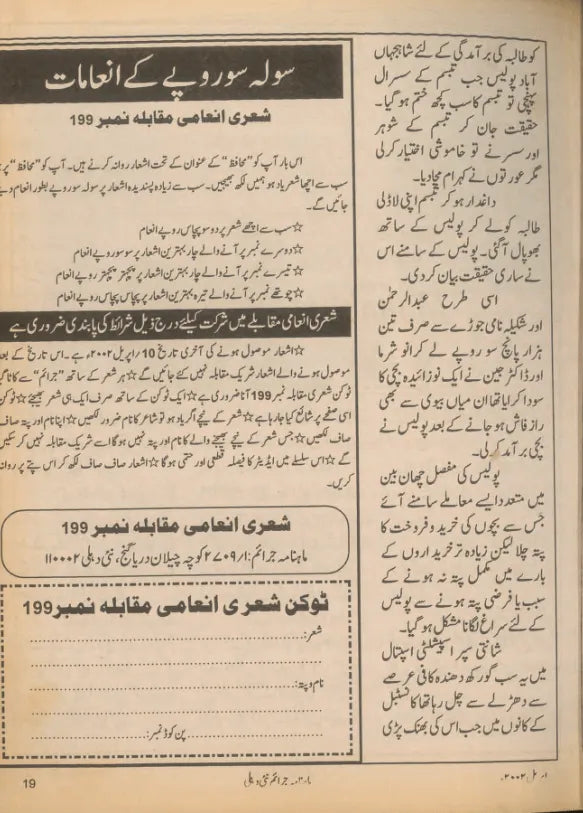 کو طالبہ کی برآمدگی کے لئے شاہجہاں
آباد پولیس جب تبسم کے سسرال
پہنچی تو تبسم کا سب کچھ ختم ہو گیا۔
حقیقت جان کر تبسم کے شوہر
اور سسر نے تو خاموشی اختیار کرلی
مگر عورتوں نے کہرام مچا دیا۔
داغدار ہو کر تبسم اپنی لاڈلی
طالبہ کو لے کر پولیس کے ساتھ
بھوپال آگئی۔ پولیس کے سامنے اس
نے ساری حقیقت بیان کردی۔
اسی طرح عبدالرحمٰن
اور شکیلہ نامی جوڑے سے صرف تین
ہزار پانچ سو روپے لے کر انو شرما
اور ڈاکٹر جین نے ایک نوزائیدہ بچی کا
سودا کرایا تھا ان میاں بیوی سے بھی
راز فاش ہو جانے کے بعد پولیس نے
بچی برآمد کرلی۔
پولیس کی مفصل چھان بین
میں متعدد ایسے معاملے سامنے آئے
جس سے بچوں کی خرید و فروخت کا
پتہ چلا لیکن زیادہ تر خریداروں کے
بارے میں مکمل پتہ نہ ہونے کے
سبب یا فرضی پتہ ہونے سے پولیس
کے لئے سراغ لگانا مشکل ہو گیا۔
شانتی سپر اسپیشلٹی اسپتال
میں یہ سب گورکھ دھندہ کافی عرصے
سے دھڑلے سے چل رہا تھا کانسٹبل
کے کانوں میں جب اس کی بھنک پڑی
سولہ سو روپے کے انعامات
شعری انعامی مقابلہ نمبر 199
اس بار آپ کو ”محافظ“ کے عنوان کے تحت اشعار روانہ کرنے ہیں۔ آپ کو ”محافظ“ پر
سب سے اچھا شعر یاد ہو ہمیں لکھ بھیجیں۔ سب سے زیادہ پسندیدہ اشعار پر سولہ سو روپے بطور انعام دیے
جائیں گے۔
☆سب سے اچھے شعر پر دو سو پچاس روپے انعام
☆دوسرے نمبر پر آنے والے چار بہترین اشعار پر سو سو روپے انعام
☆تیسرے نمبر پر آنے والے چار بہترین اشعار پر پچھتر پچھتر روپے انعام
☆چوتھے نمبر پر آنے والے تیرہ بہترین اشعار پر پچاس پچاس روپے انعام
شعری انعامی مقابلے میں شرکت کیلئے درج ذیل شرائط کی پابندی ضروری ہے
☆اشعار موصول ہونے کی آخری تاریخ 10/اپریل ۲۰۰۲ء ہے۔ اس تاریخ کے بعد
موصول ہونے والے اشعار شریک مقابلہ نہیں کئے جائیں گے ☆ہر شعر کے ساتھ ”جرائم“ سے کاٹا گیا
ٹوکن شعری مقابلہ نمبر 199 آنا ضروری ہے ☆ایک ٹوکن کے ساتھ صرف ایک ہی شعر بھیجئے ☆ٹوکن
اسی صفحے پر شائع کیا جا رہا ہے ☆شعر کے نیچے اگر یاد ہو تو شاعر کا نام ضرور لکھیں ☆اپنا نام اور پتہ صاف
صاف لکھیں ☆جس شعر کے نیچے بھیجنے والے کا نام اور پتہ نہیں ہوگا اسے شریک مقابلہ نہیں کر سکیں
گے ☆اس سلسلے میں ایڈیٹر کا فیصلہ قطعی اور حتمی ہوگا ☆اشعار صاف صاف لکھ کر اس پتے پر روانہ
کریں۔
شعری انعامی مقابلہ نمبر 199
ماہنامہ جرائم: ۲۷۰۹/۱ کوچہ چیلان دریا گنج، نئی دہلی ۱۱۰۰۰۲
ٹوکن شعری انعامی مقابلہ نمبر 199
شعر:
نام و پتہ:
پن کوڈ نمبر:
۲۰۰۲ء
جرائم نئی دہلی
19